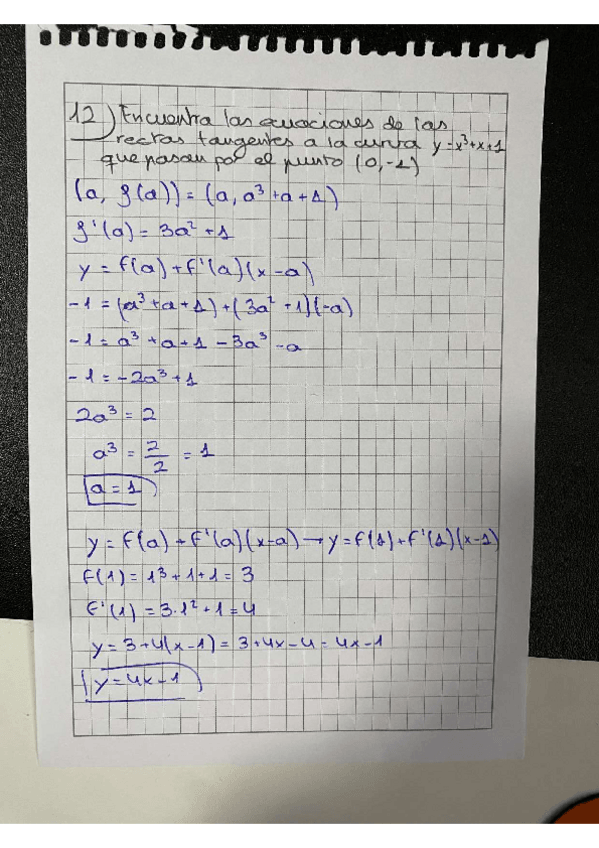 12) Encuentra las ecuaciones de las
rectas tangentes a la curva y=x³+x+1
que pasan por el punto (0,-1)
(a, f(a)) = (a, a³+a+1)
f'(a) = 3a²+1
y = f(a) + f'(a)(x-a)
-1 = (a³+a+1)+(3a²+1)(-a)
-1 = a³+a+1-3a³-a
-1 = -2a³+1
2a³ = 2
a³ = 2/2 = 1
a = 1
y = f(a) + f'(a)(x-a) → y = f(1) + f'(1)(x-1)
f(1) = 1³+1+1 = 3
f'(1) = 3·1²+1 = 4
y = 3+4(x-1) = 3+4x-4 = 4x-1
y = 4x-1